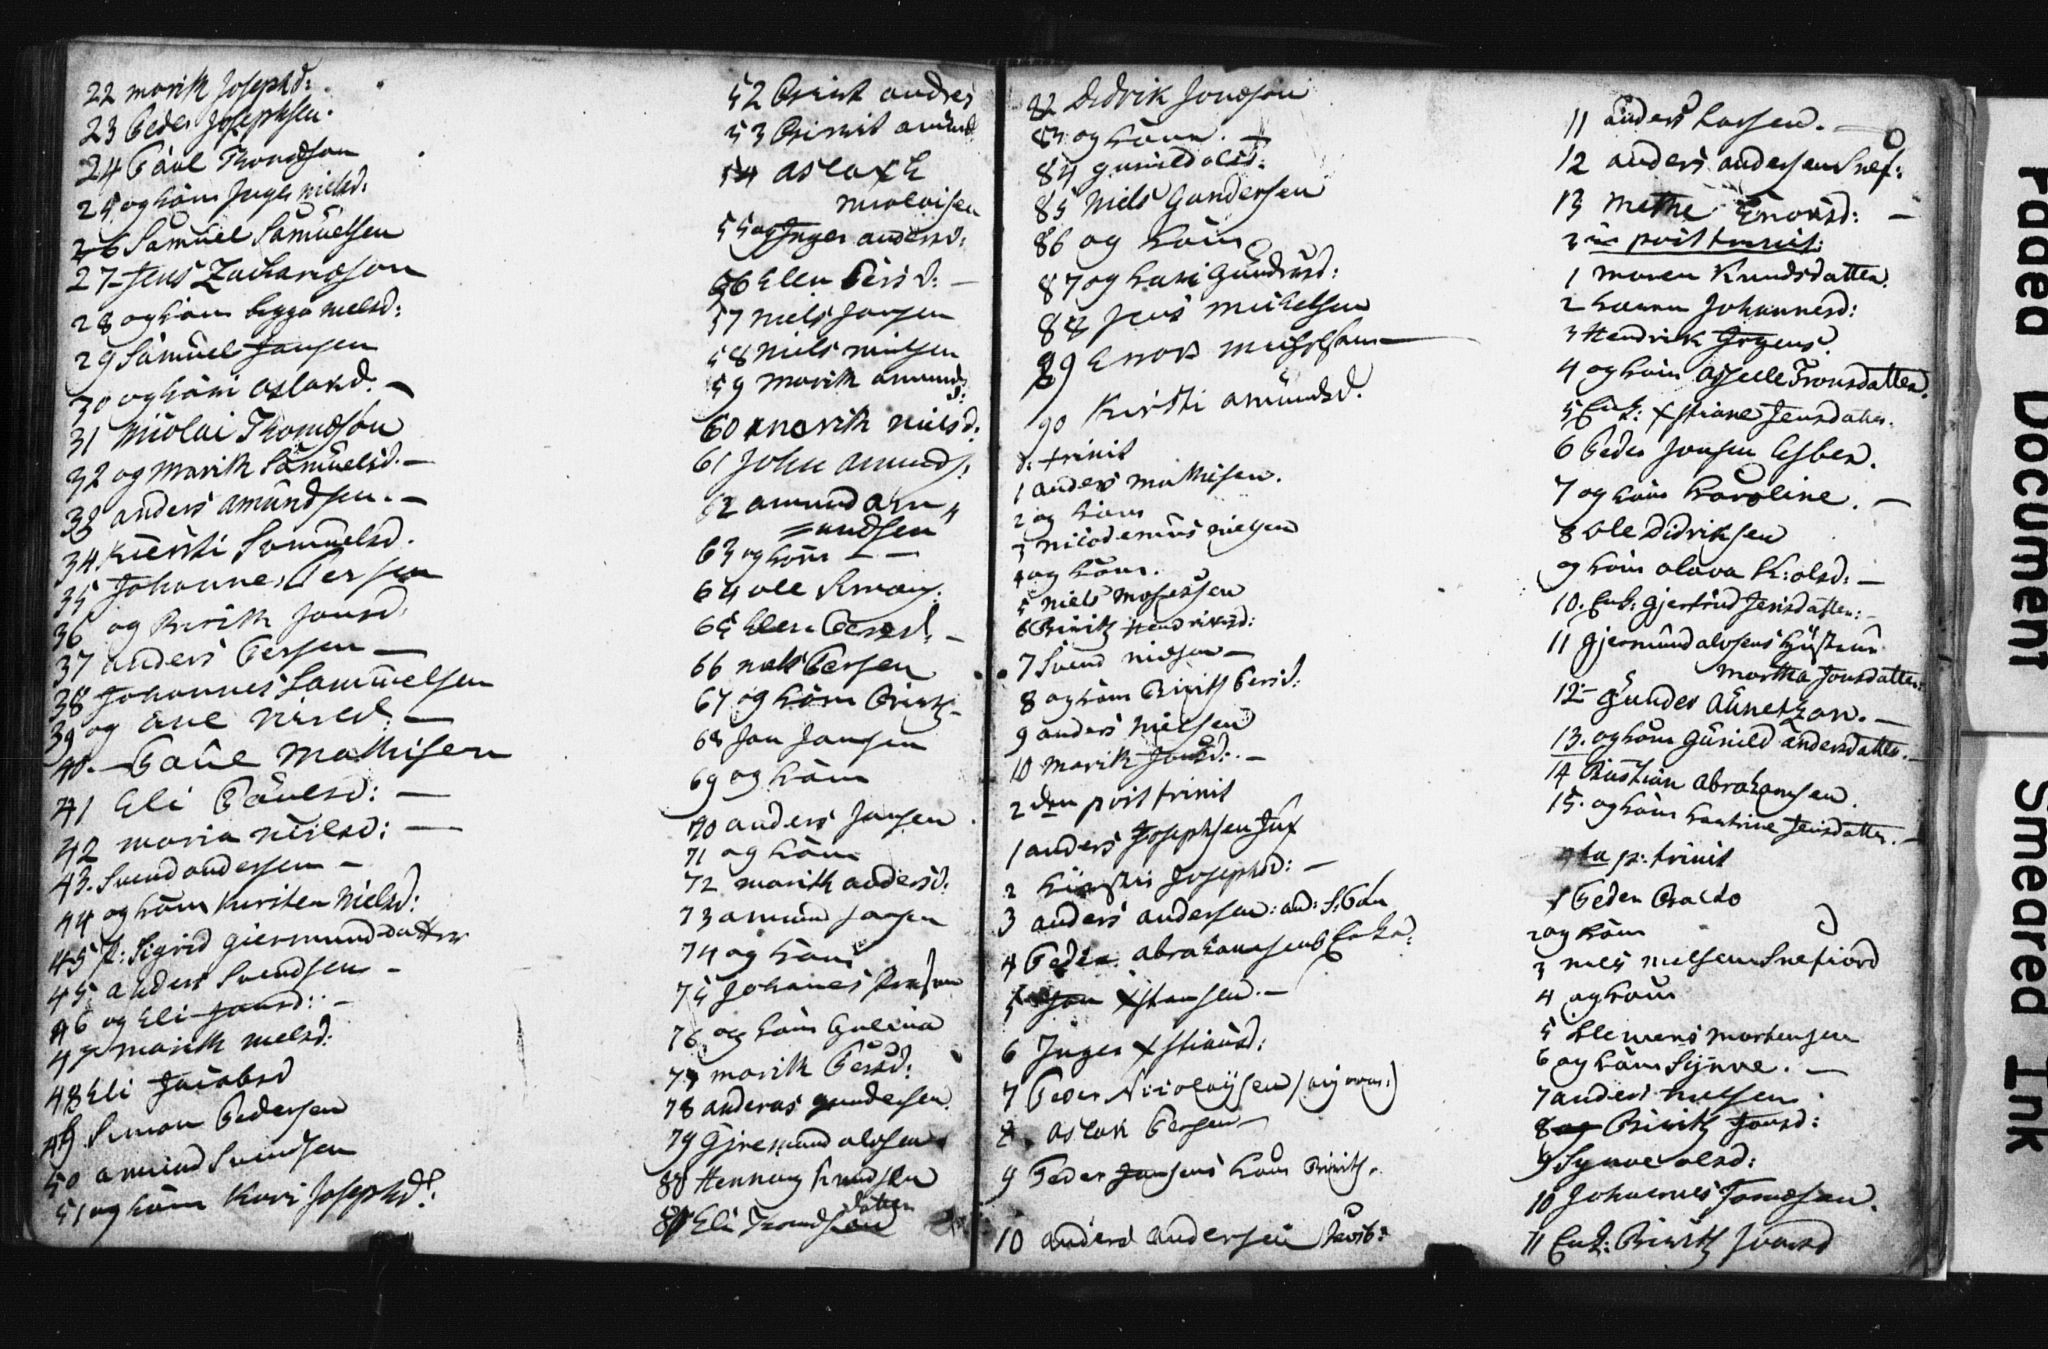 22 marith Josephsd:
23 Peder Josephsen.
24 Paul Thomæson
25 og høm Inger nielsd:
26 Samuel Samuelsen
27 Jens Zachariæson
28 og høm begga nielsd:
29 Samuel Jansen
30 og høm aslaksd. –
31 Niolai Thomæson
32 og Marith Samuelsd. –
33 anders amundsen. –
34 Kiersti Samuelsd.
35 Johannes Persen
36 og Birith Jonsd:
37 anders Persen –
38 Johannes Samuelsen
39 og ane Nielsd: –
40. – Paul Mathisen
41 Eli Påulsd: –
42 maria nielsd: –
43. Svend andersen –
44 og høm Kirsten Nielsd:
45 p: Sigrid giermundsdatter
45 anders Svendsen –
46 og Eli Jonsd: –
47 marith nielsd:
48 Eli Jacobsd
49 Simon Pedersen
50 amund Svendsen
51 og høm Kari Josephsd:
52 Birit anders
53 Birrit amund
54 aslak
niolaisen
55 og Inger andersd:
56 Ellen Persd: –
57 Niels Jansen
58 Niels nielsen
59 Marith amunds
d:
60 marith nielsd:
61 John amunds:
62 amund am
=undsen
63 og høm – –
64 ole
65 Elen Persd: –
66 niels Persen
67 og høm Birith –
68 Jan Jansen
69 og høm
70 anders Jansen
71 og høm
72 marith andersd:
73 amund Jansen
74 og høm
75 Johanes
76 og høm Gulina
77 marith Persd:
78 anderas gundersen
79 Gjremund olofsen
80 Henning Knudsen
datter
81 Eli Thomdson
82 Didrik Jonæson
83 og høm. –
84 gunild olsd:
85 Niels Gundersen
86 og høm
87 og kari Gundersd:
88 Jens Michelsen
89 Enok Michelsen –
90 Kirsti amundsd.
d: trinit
1 anders mathisen.
2 og høm
3 nicodemus nielsen
4 og høm.
5 niels mosessen
6 Birith Hendriksd:
7 Svend nielsen –
8 og høm Birith Persd:
9 anders Nielsen
10 Marith Jonsd: –
2den post trinit
1 anders Josephsen Juf
2 Kirsti Josephsd: –
3 anders andersen: and:
4 Peder abrahamsens
5 Jon Xstansen. –
6 Inger Xstiansd:
7 Peder Nicolaÿsen
8. aslak Persen –
9 Peder Jansens høm Birith.
10 anders andersen
11 anders Larsen. –
12 anders andersen Snef:
13 Methe Enoksd: –
3die post trinit:
1 maren Knudsdatter.
2 karen Johannesd:
3 Hendrik Jørgens:
4 og høm Tronsdatter.
5 Enk: Xstiane Jensdatter.
6 Peder Jonsen Esben.
7 og høm karoline. –
8 ole Didriksen
og høm olava K: olsd: –
10. Enk: gjertrud Jensdatter: –
11 gjermund olosens hustrue
Martha Jonsdatter:
12 – Gunder –
13. og høm Gunild andersdatter. –
14 Bastian abrahamsen.
15. og høm kathrine Jensdatter. –
4ta p: trinit
1 Peder
2 og høm
3 niels nielsen Snefiord
4 og høm
5 klemens mortensen
6 og høm Synve. –
7 anders nielsen.
8 og Birith Jonsd:
9 Synve olsd:
10 Johannes Tomæsen.
11 Enk: Birith Ivarsd
Faded Document
Smeared Ink